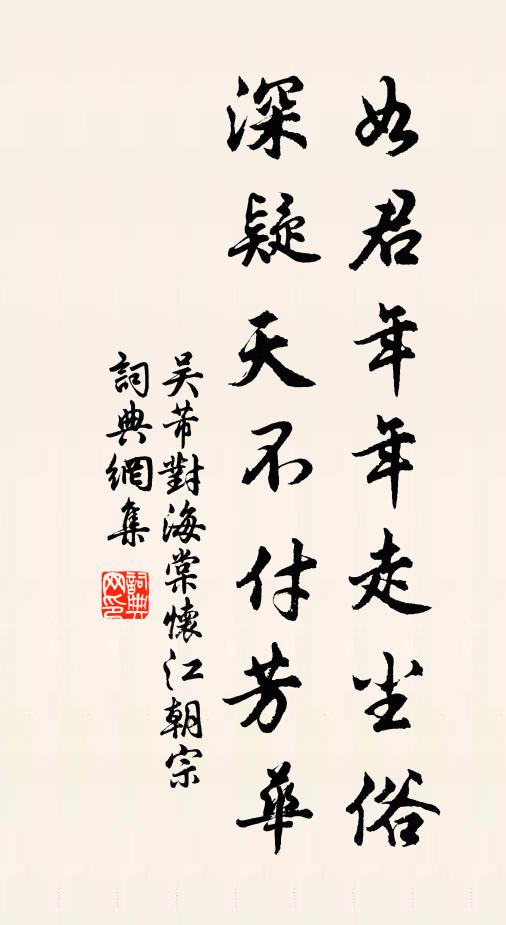 如君年年走尘俗
深疑天不付芳華
吴芾對海棠懷江朝宗
詞典網集
詞典
网印